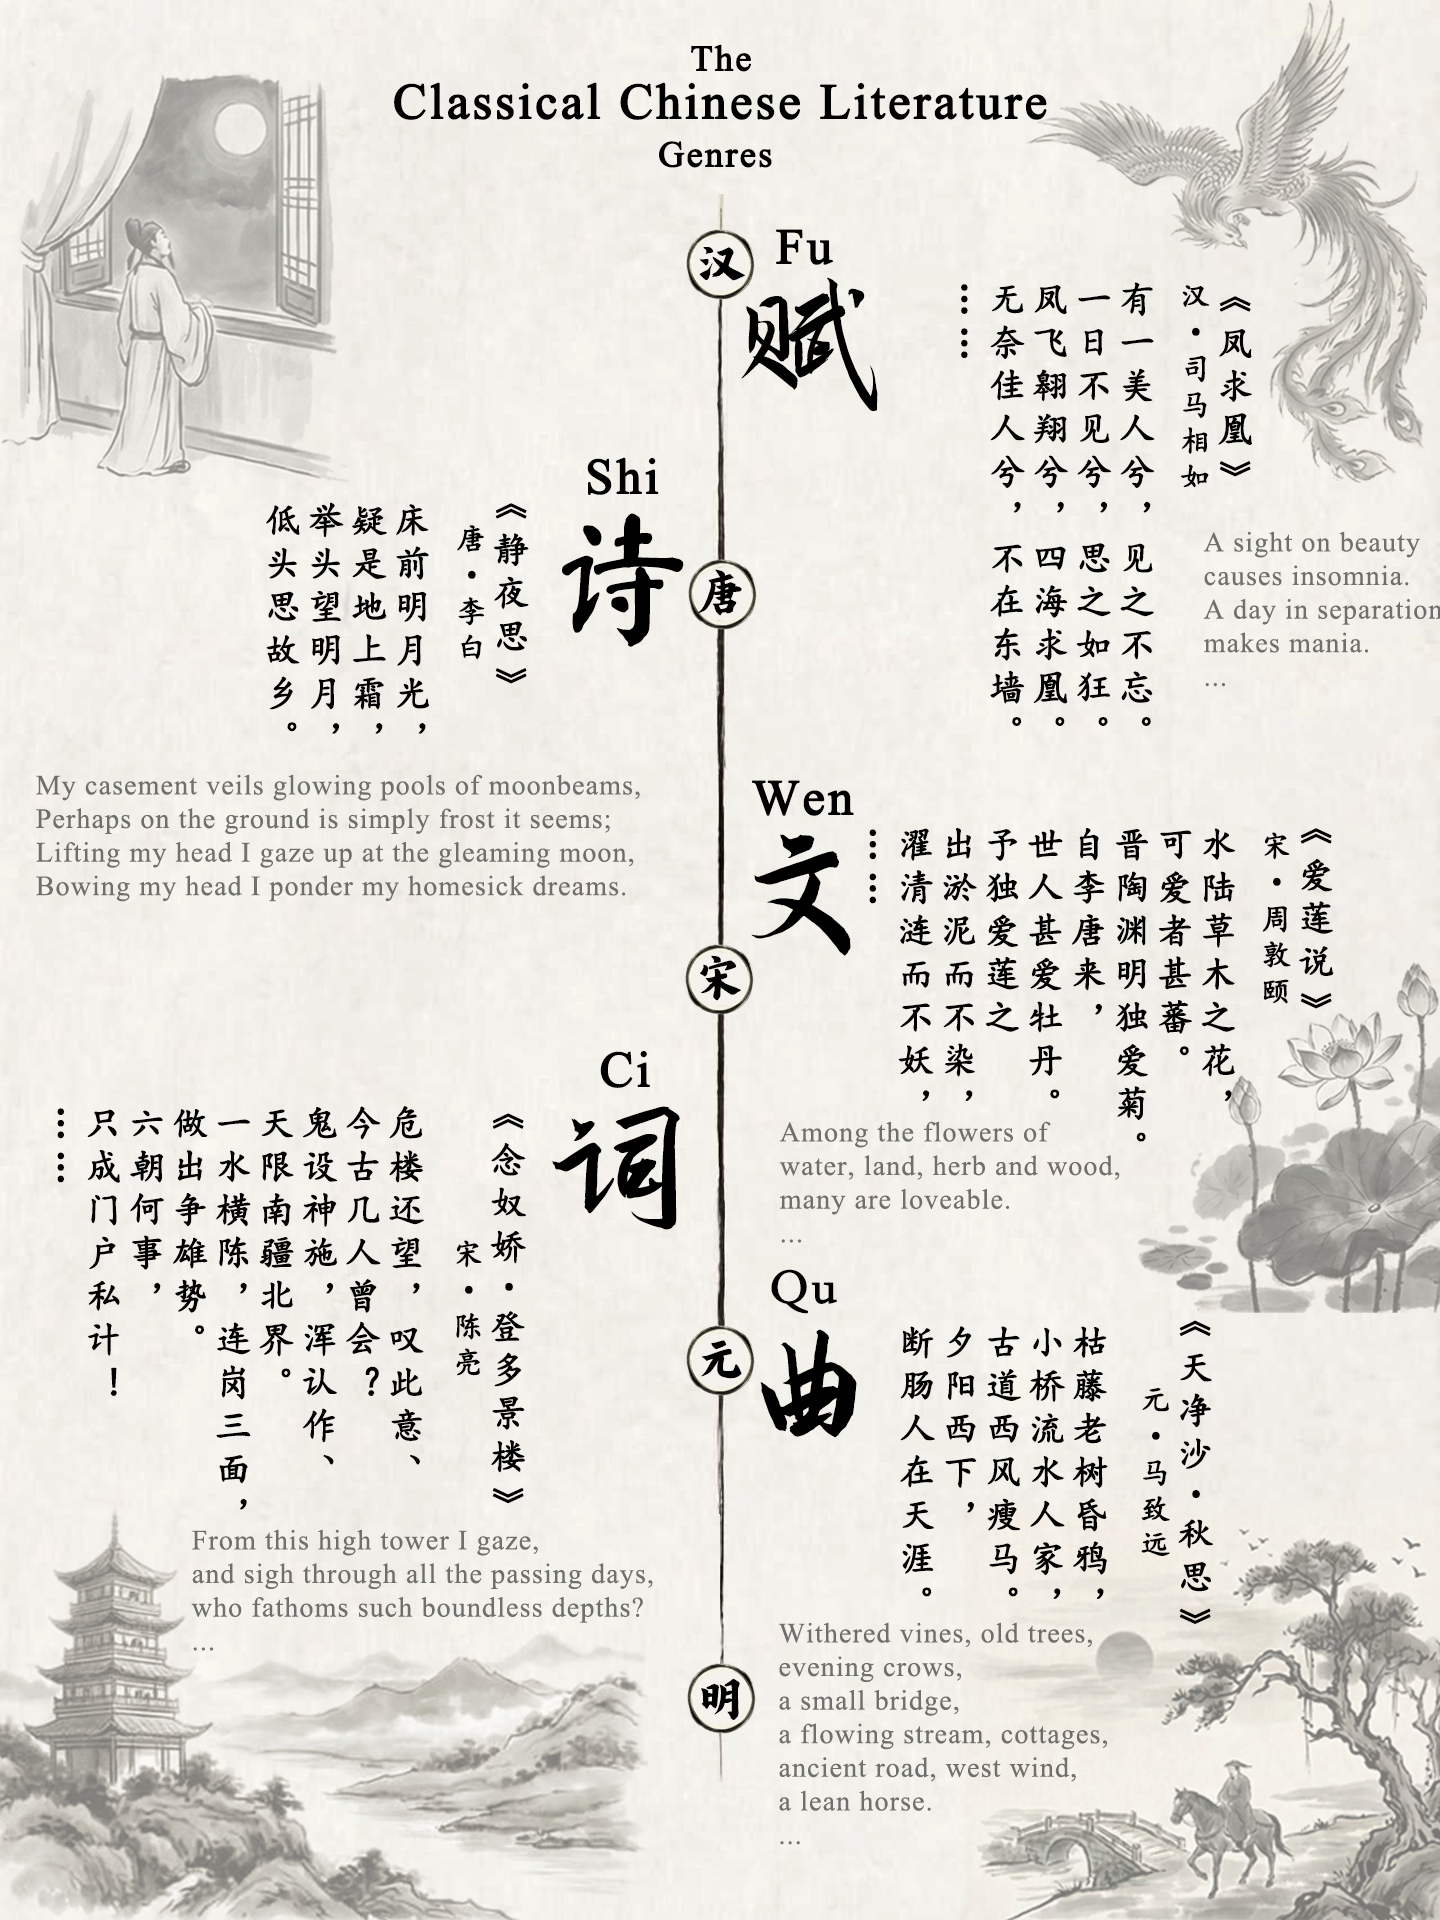 The
Classical Chinese Literature
Genres
汉
Fu
赋
《凤求凰》
汉·司马相如
有一美人兮，见之不忘。
一日不见兮，思之如狂。
凤飞翱翔兮，四海求凰。
无奈佳人兮，不在东墙。
……
A sight on beauty
causes insomnia.
A day in separation
makes mania.
...
Shi
诗
唐
《静夜思》
唐·李白
床前明月光，
疑是地上霜，
举头望明月，
低头思故乡。
My casement veils glowing pools of moonbeams,
Perhaps on the ground is simply frost it seems;
Lifting my head I gaze up at the gleaming moon,
Bowing my head I ponder my homesick dreams.
Wen
文
宋
《爱莲说》
宋·周敦颐
水陆草木之花，
可爱者甚蕃。
晋陶渊明独爱菊。
自李唐来，
世人甚爱牡丹。
予独爱莲之
出淤泥而不染，
濯清涟而不妖，
……
Among the flowers of
water, land, herb and wood,
many are loveable.
...
Ci
词
《念奴娇·登多景楼》
宋·陈亮
危楼还望，叹此意、
今古几人曾会？
鬼设神施，浑认作、
天限南疆北界。
一水横陈，连岗三面，
做出争雄势。
六朝何事，
只成门户私计！
……
From this high tower I gaze,
and sigh through all the passing days,
who fathoms such boundless depths?
...
Qu
元
曲
《天净沙·秋思》
元·马致远
枯藤老树昏鸦，
小桥流水人家，
古道西风瘦马。
夕阳西下，
断肠人在天涯。
Withered vines, old trees,
evening crows,
a small bridge,
a flowing stream, cottages,
ancient road, west wind,
a lean horse.
...
明